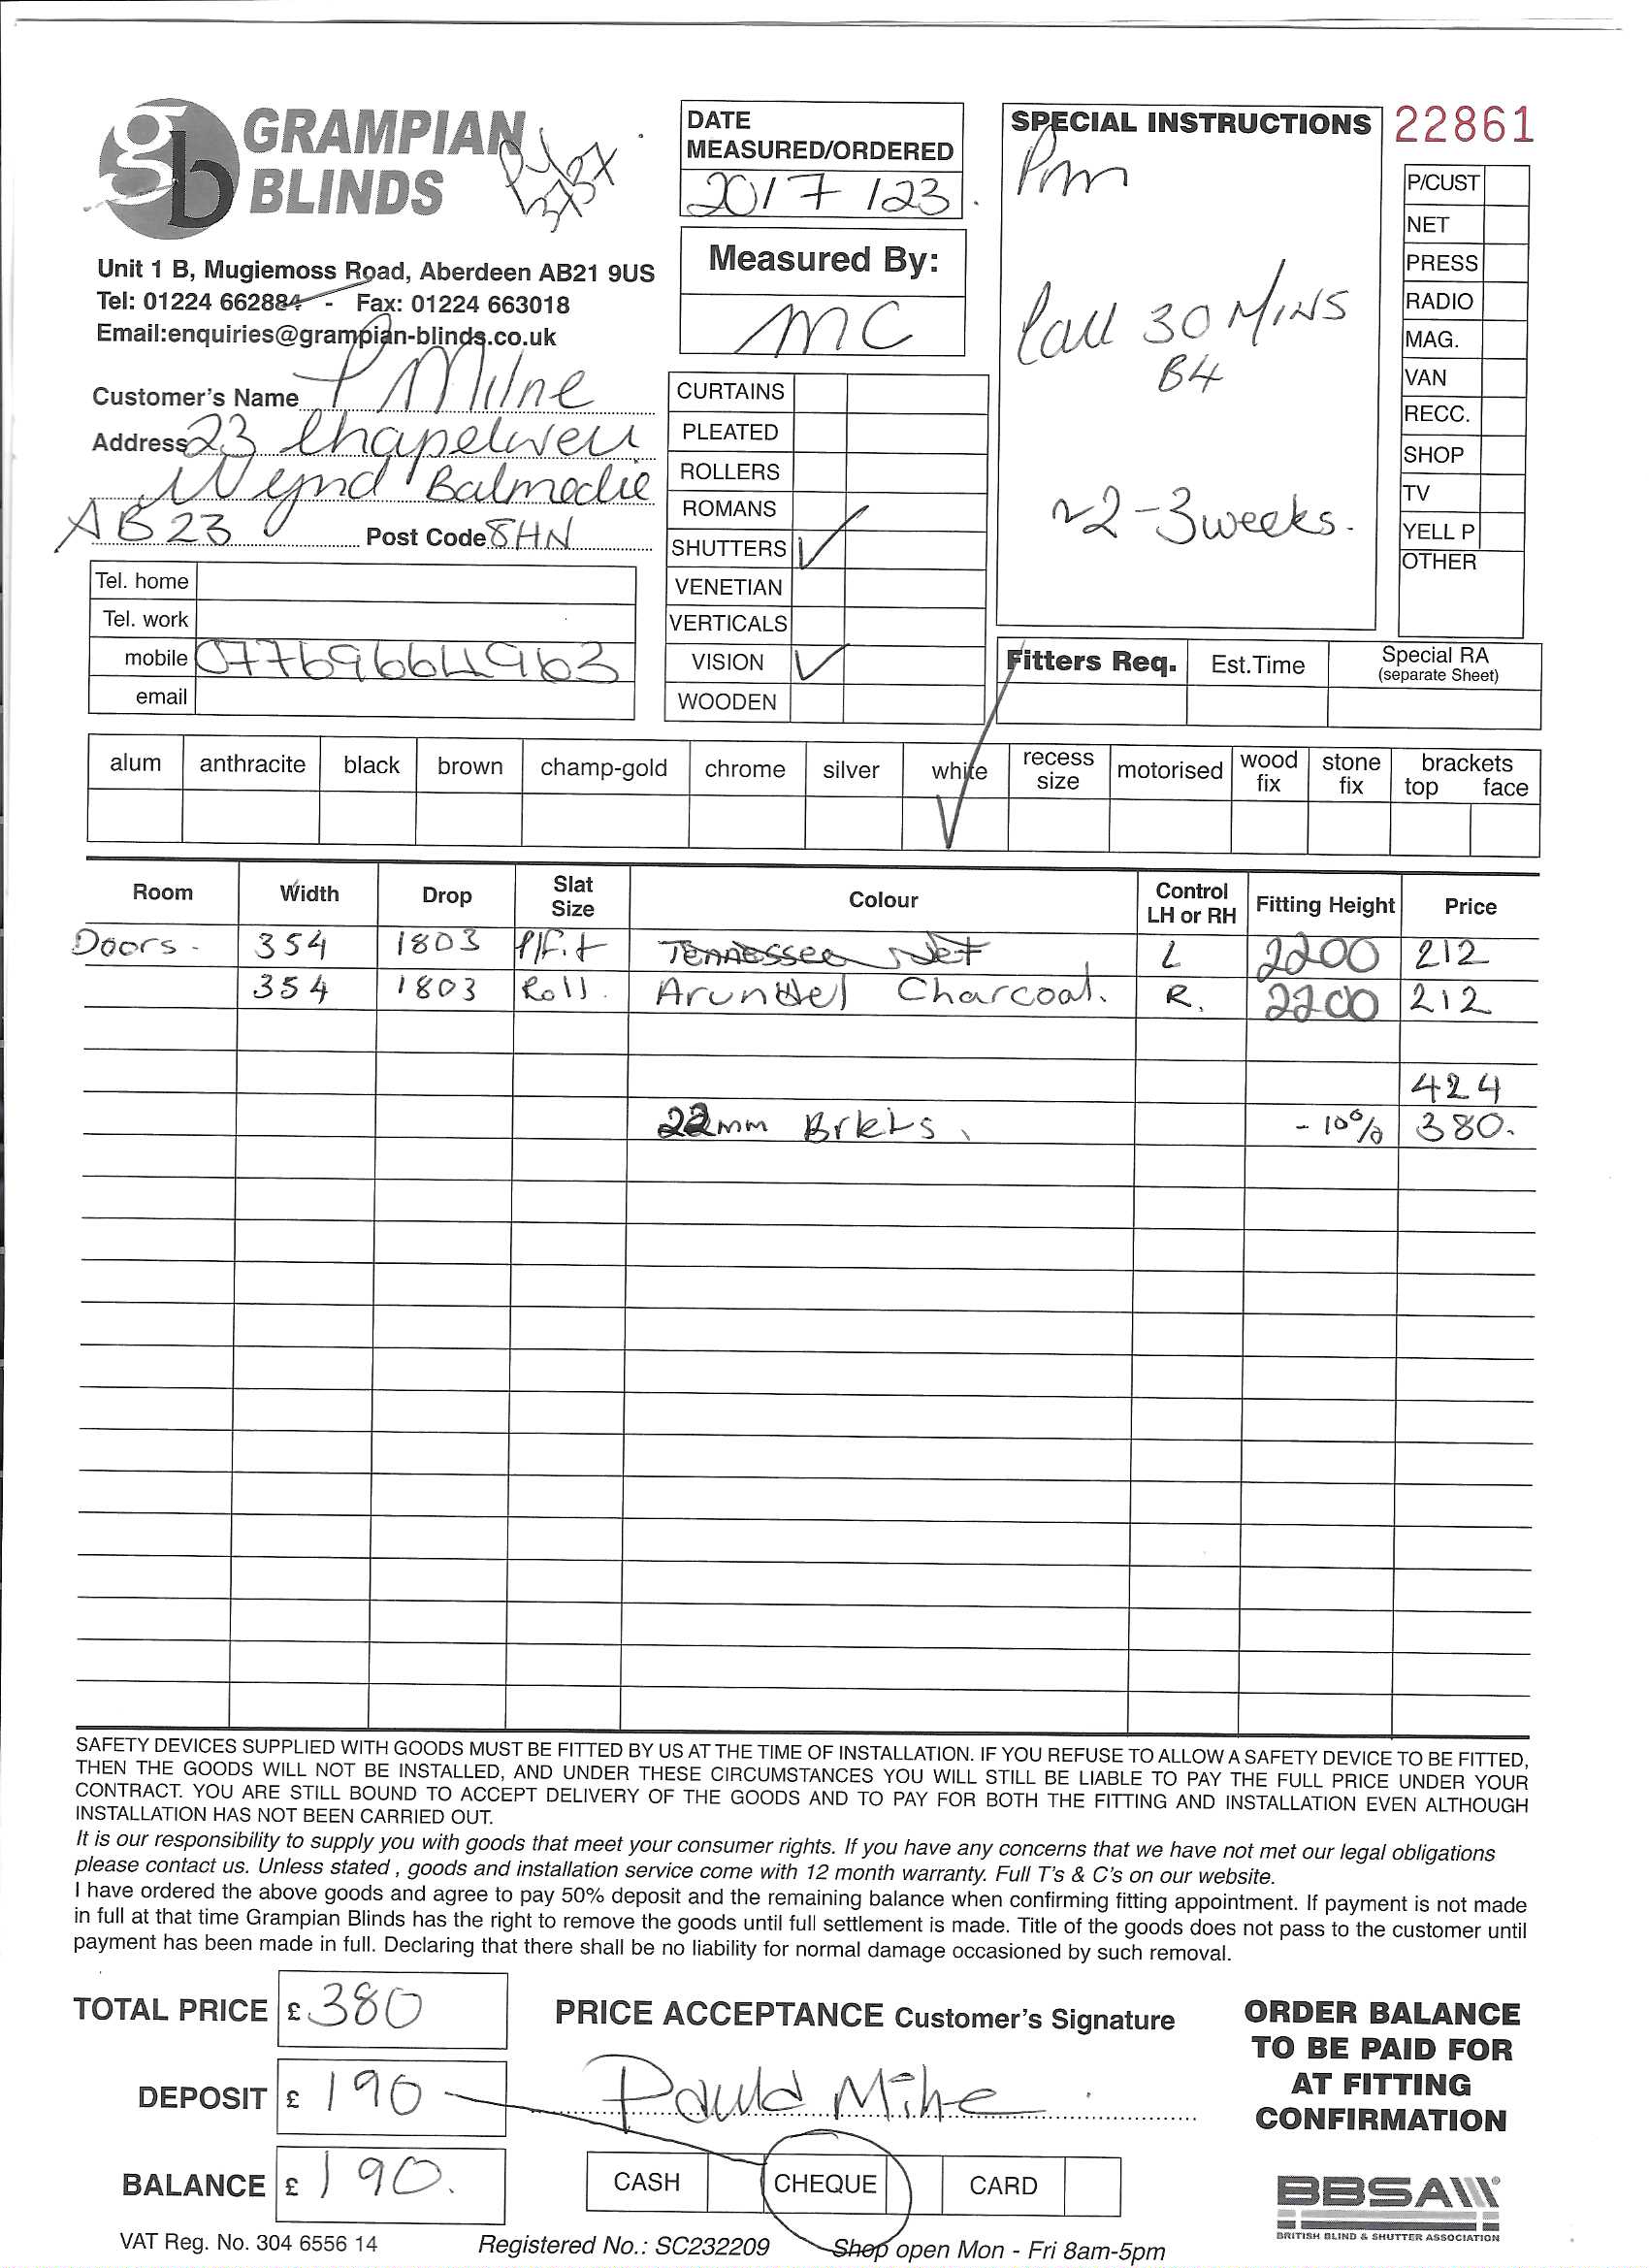 GRAMPIAN
BLINDS
Unit 1 B, Mugiemoss Road, Aberdeen AB21 9US
Tel: 01224 662884 - Fax: 01224 663018
Email:enquiries@grampian-blinds.co.uk
Customer's Name P Milne
Address 23 Chapelwell
Wynd Balmedie
AB23 Post Code 8HN
Tel. home
Tel. work
mobile 07769664963
email
DATE
MEASURED/ORDERED
20/7/23
Measured By:
MC
CURTAINS
PLEATED
ROLLERS
ROMANS
SHUTTERS ✓
VENETIAN
VERTICALS
VISION ✓
WOODEN
SPECIAL INSTRUCTIONS
Pm
Call 30 MINS
B4
~2-3 weeks.
22861
P/CUST
NET
PRESS
RADIO
MAG.
VAN
RECC.
SHOP
TV
YELL P
OTHER
Fitters Req. Est.Time Special RA
(separate Sheet)
alum anthracite black brown champ-gold chrome silver white recess size motorised wood fix stone fix brackets top face
✓
Room Width Drop Slat Size Colour Control LH or RH Fitting Height Price
Doors - 354 1803 P/Fit Tennessee Jet L 2200 212
354 1803 Roll. Arundel Charcoal. R. 2200 212
424
22mm Brkts. - 10% 380.
SAFETY DEVICES SUPPLIED WITH GOODS MUST BE FITTED BY US AT THE TIME OF INSTALLATION. IF YOU REFUSE TO ALLOW A SAFETY DEVICE TO BE FITTED,
THEN THE GOODS WILL NOT BE INSTALLED, AND UNDER THESE CIRCUMSTANCES YOU WILL STILL BE LIABLE TO PAY THE FULL PRICE UNDER YOUR
CONTRACT. YOU ARE STILL BOUND TO ACCEPT DELIVERY OF THE GOODS AND TO PAY FOR BOTH THE FITTING AND INSTALLATION EVEN ALTHOUGH
INSTALLATION HAS NOT BEEN CARRIED OUT.
It is our responsibility to supply you with goods that meet your consumer rights. If you have any concerns that we have not met our legal obligations
please contact us. Unless stated , goods and installation service come with 12 month warranty. Full T's & C's on our website.
I have ordered the above goods and agree to pay 50% deposit and the remaining balance when confirming fitting appointment. If payment is not made
in full at that time Grampian Blinds has the right to remove the goods until full settlement is made. Title of the goods does not pass to the customer until
payment has been made in full. Declaring that there shall be no liability for normal damage occasioned by such removal.
TOTAL PRICE £ 380
DEPOSIT £ 190
BALANCE £ 190.
PRICE ACCEPTANCE Customer's Signature
CASH CHEQUE CARD
ORDER BALANCE
TO BE PAID FOR
AT FITTING
CONFIRMATION
BBSA
BRITISH BLIND & SHUTTER ASSOCIATION
VAT Reg. No. 304 6556 14 Registered No.: SC232209 Shop open Mon - Fri 8am-5pm